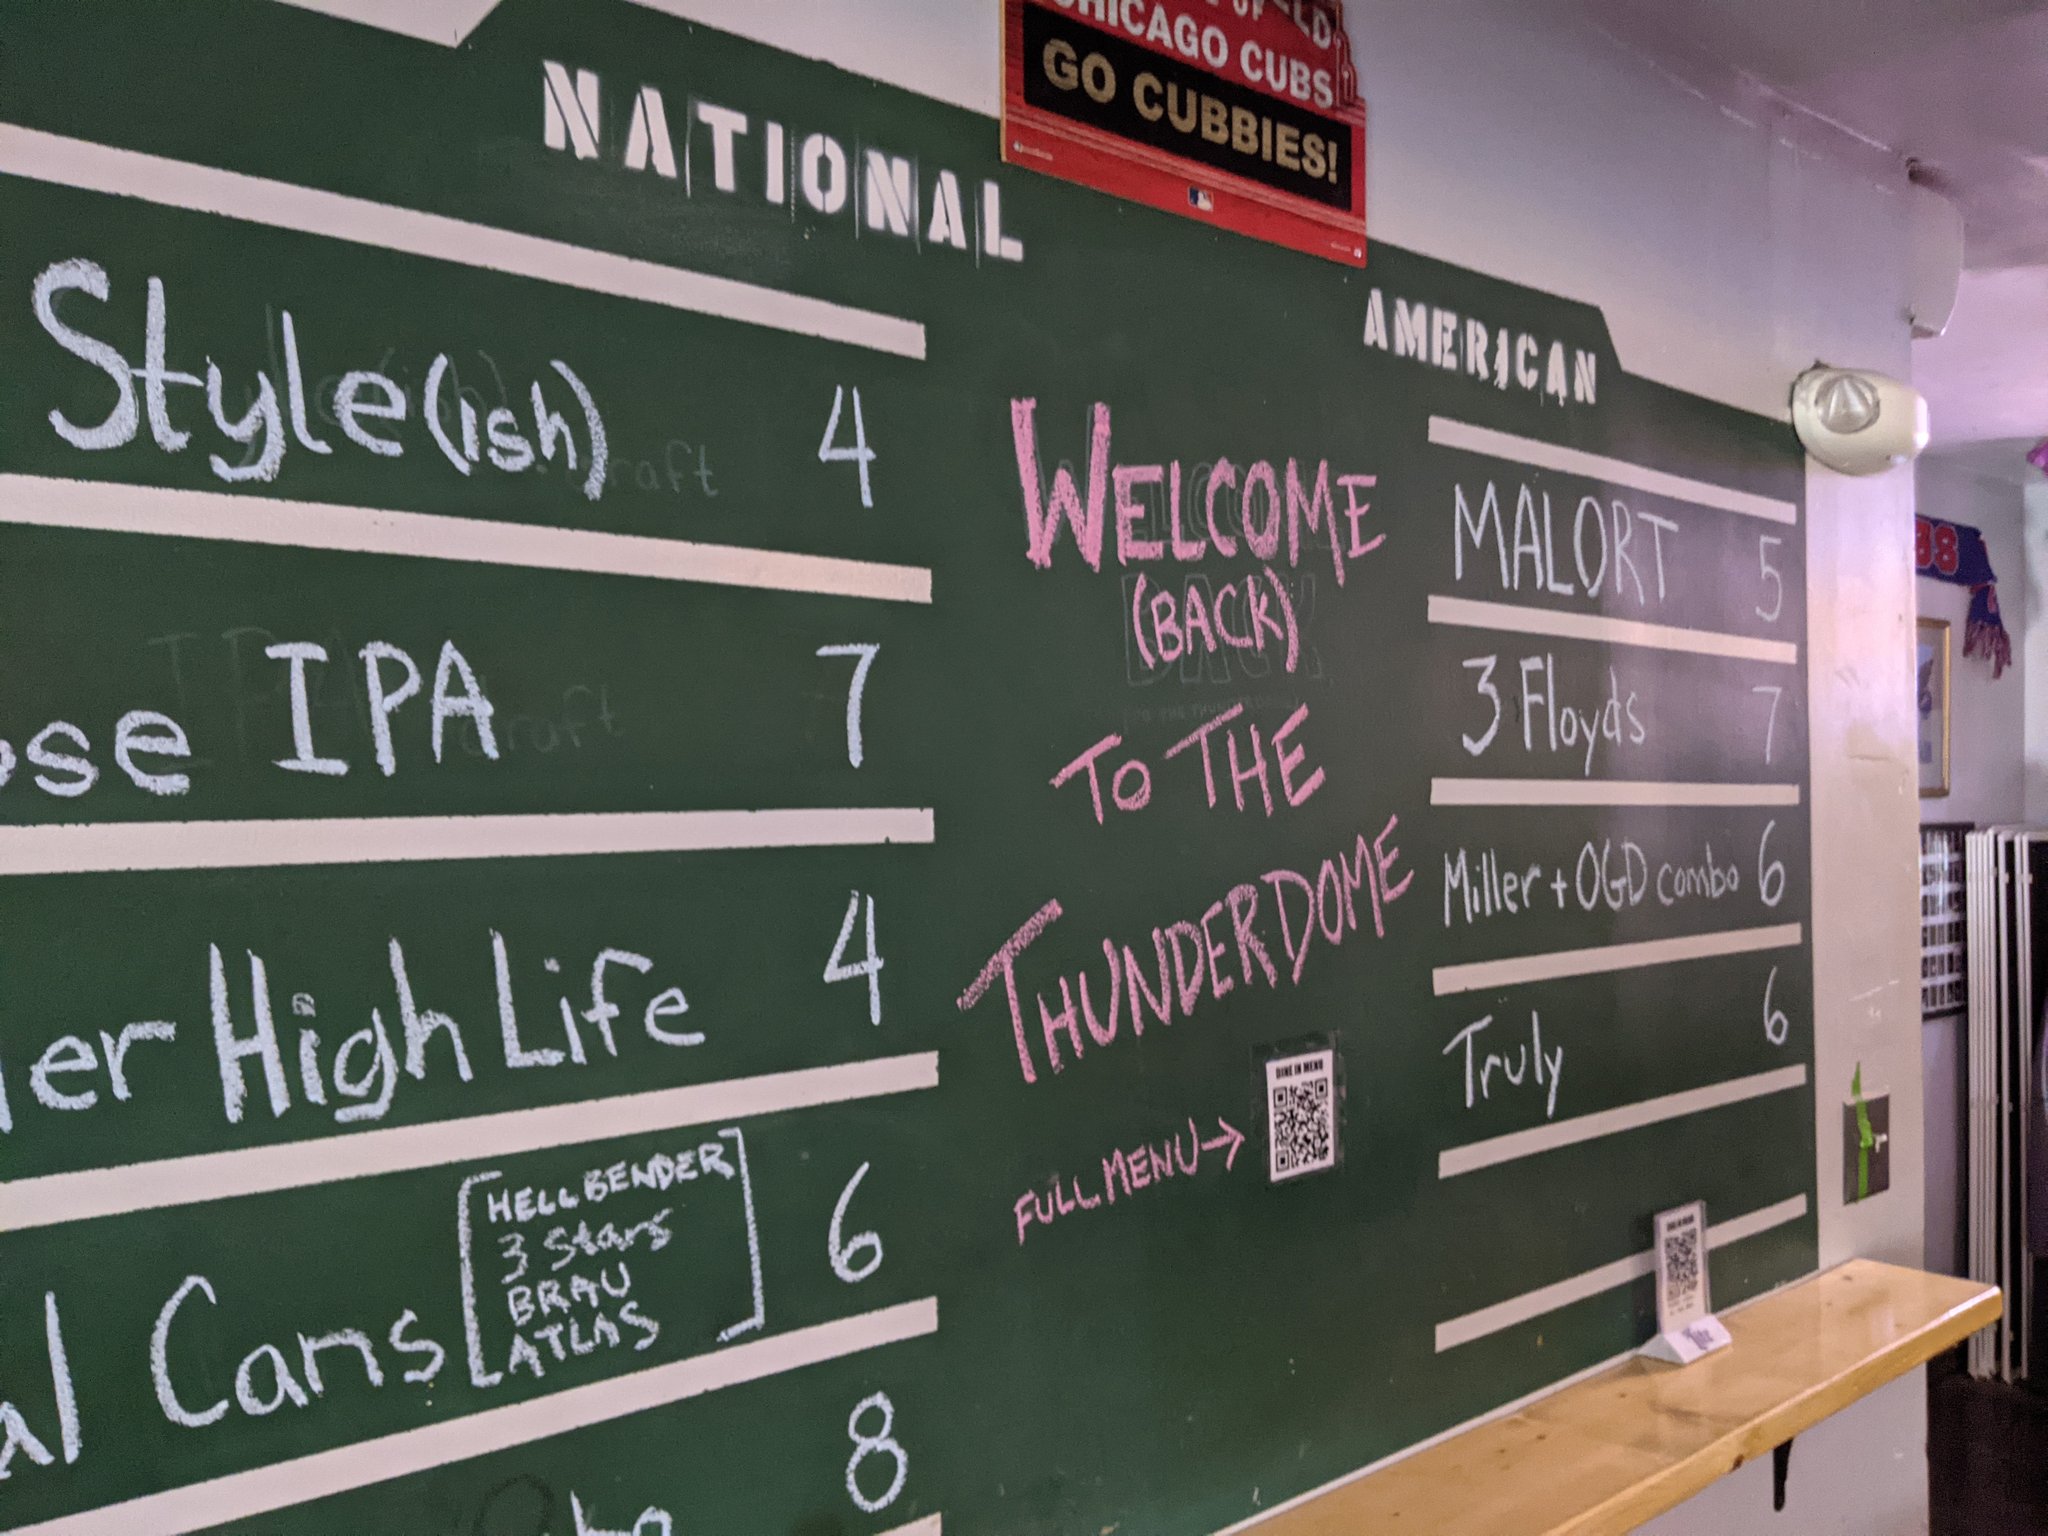 CHICAGO CUBS
GO CUBBIES!
NATIONAL
Style(ish) 4
IPA 7
High Life 4
Cans [HELLBENDER
3 Stars
BRAU
ATLAS] 6
8
WELCOME
(BACK)
TO THE
THUNDERDOME
FULL MENU →
DINE IN MENU
AMERICAN
MALORT 5
3 Floyds 7
Miller + OGD combo 6
Truly 6